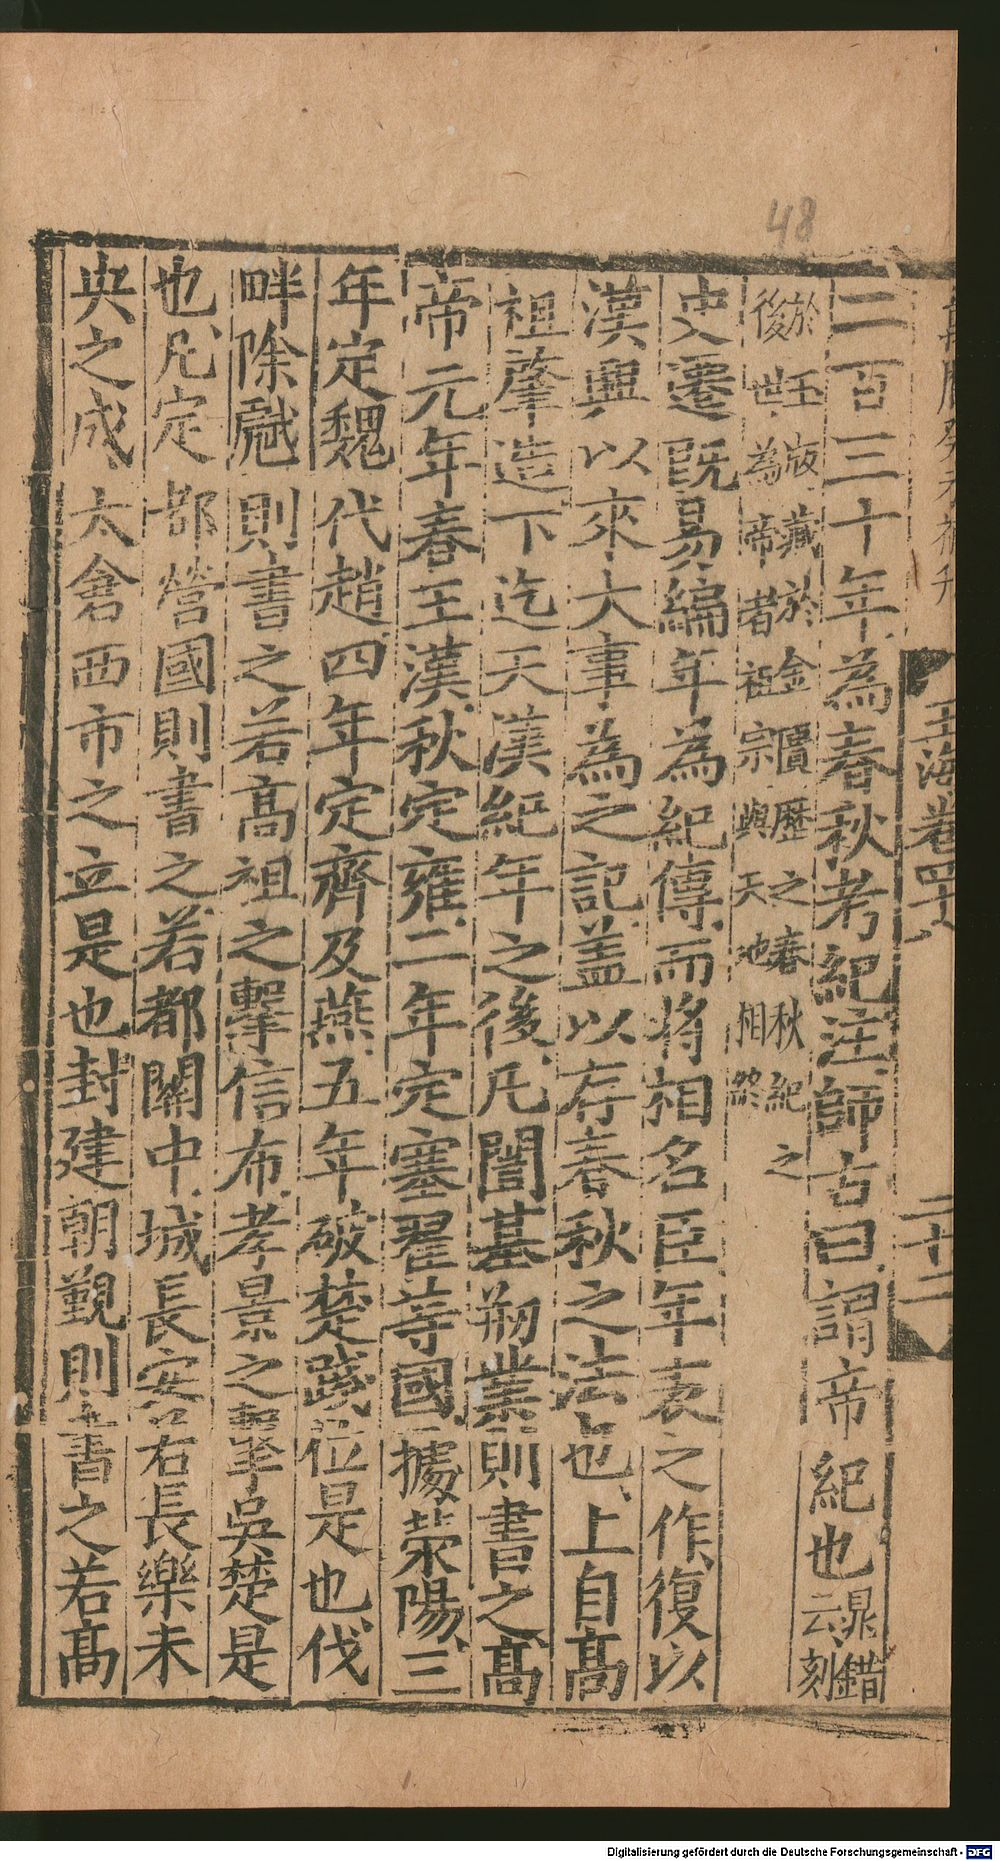 48
玉海卷四十六
二十二
二百三十年為春秋考紀注師古曰謂帝紀也晁錯云刻
於玉版藏於金匱歷之春秋紀之
後世為帝者祖宗與天地相終
史遷既易編年為紀傳而將相名臣年表之作復以
漢興以來大事為之記蓋以存春秋之法也上自高
祖肇造下迄天漢紀年之後凡闓基剏業則書之高
帝元年春王漢秋定雍二年定塞翟等國據滎陽三
年定魏代趙四年定齊及燕五年破楚踐位是也伐
畔除虣則書之若高祖之擊信布孝景之擊吳楚是
也凡定都營國則書之若都關中城長安若長樂未
央之成太倉西市之立是也封建朝覲則書之若高
Digitalisierung gefördert durch die Deutsche Forschungsgemeinschaft - DFG